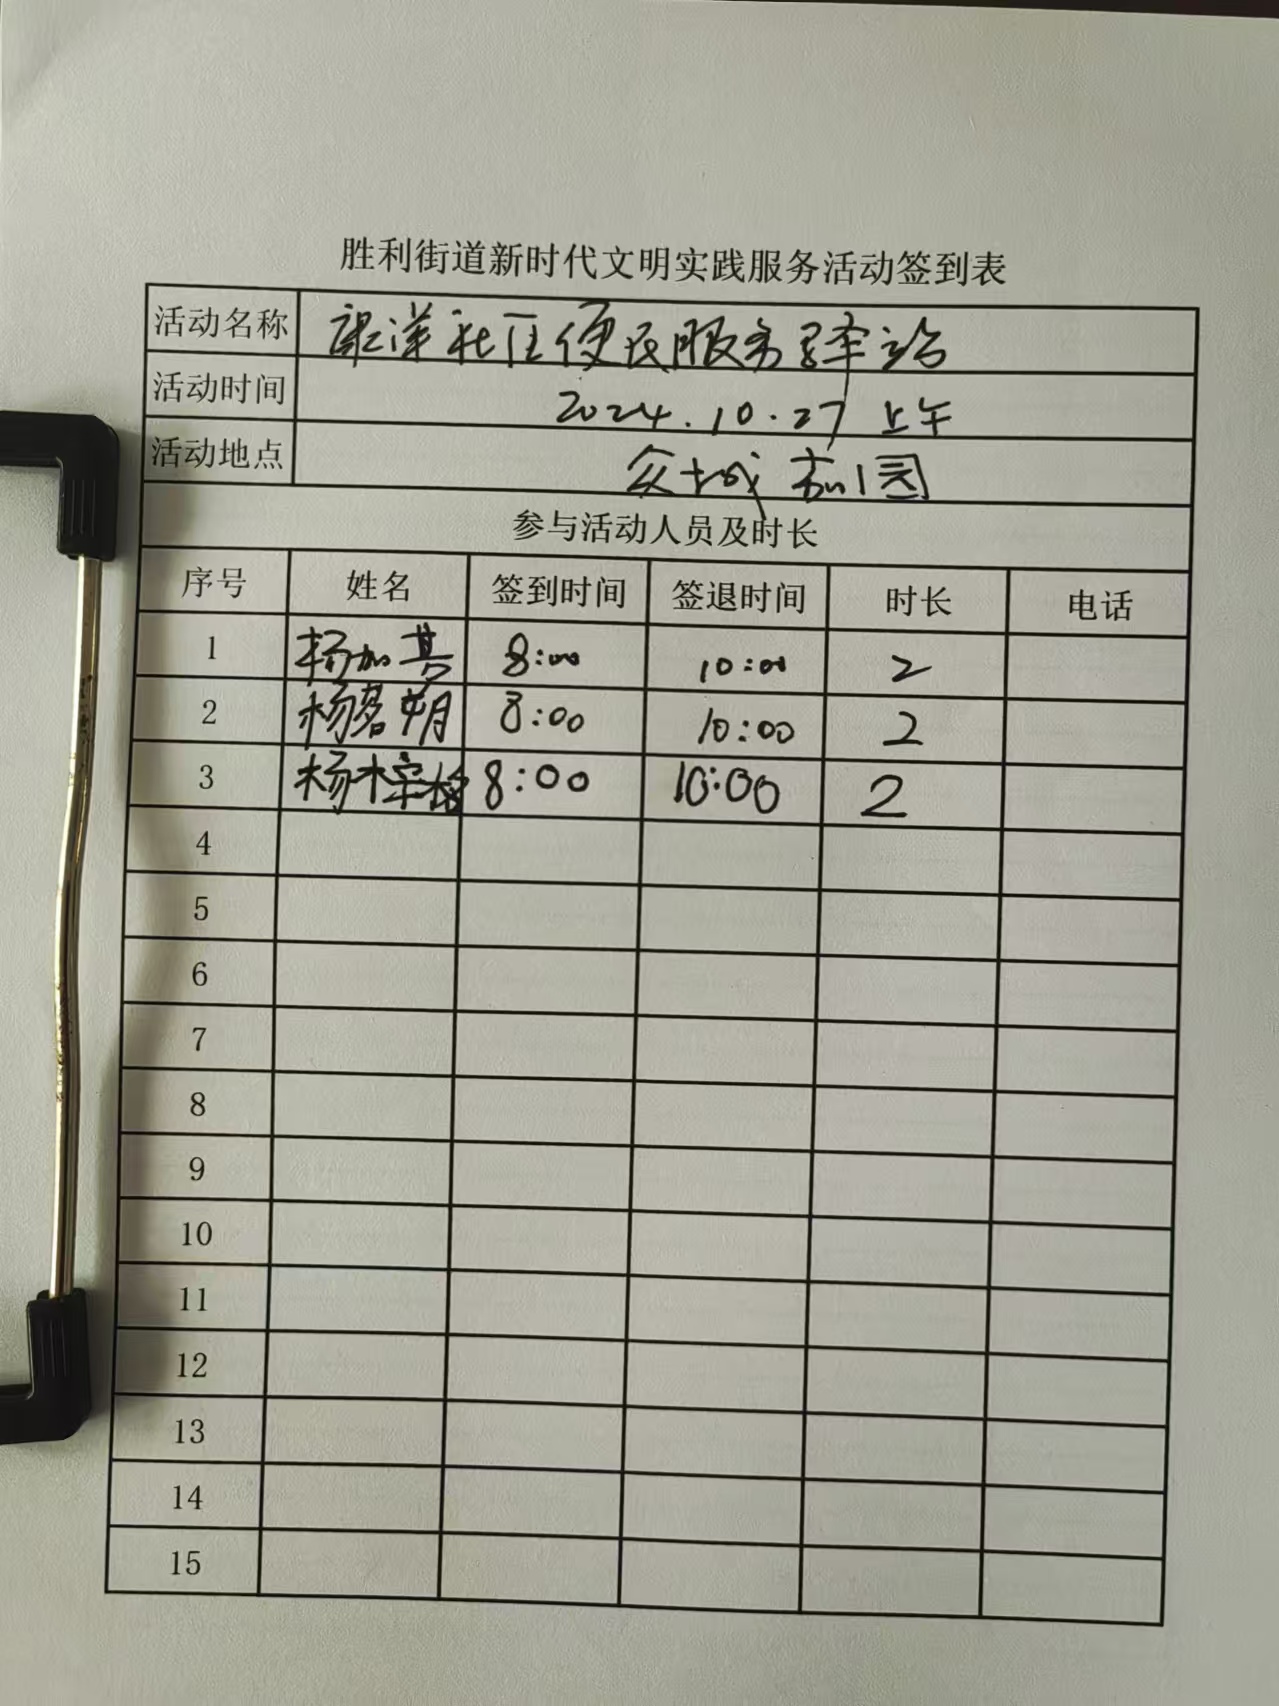 胜利街道新时代文明实践服务活动签到表
活动名称 洋社区便民服务驿站
活动时间 2024.10.27 上午
活动地点 众城 园
参与活动人员及时长
序号 姓名 签到时间 签退时间 时长 电话
1 杨加 8:00 10:00 2
2 杨茗玥 8:00 10:00 2
3 杨梓榕 8:00 10:00 2
4
5
6
7
8
9
10
11
12
13
14
15